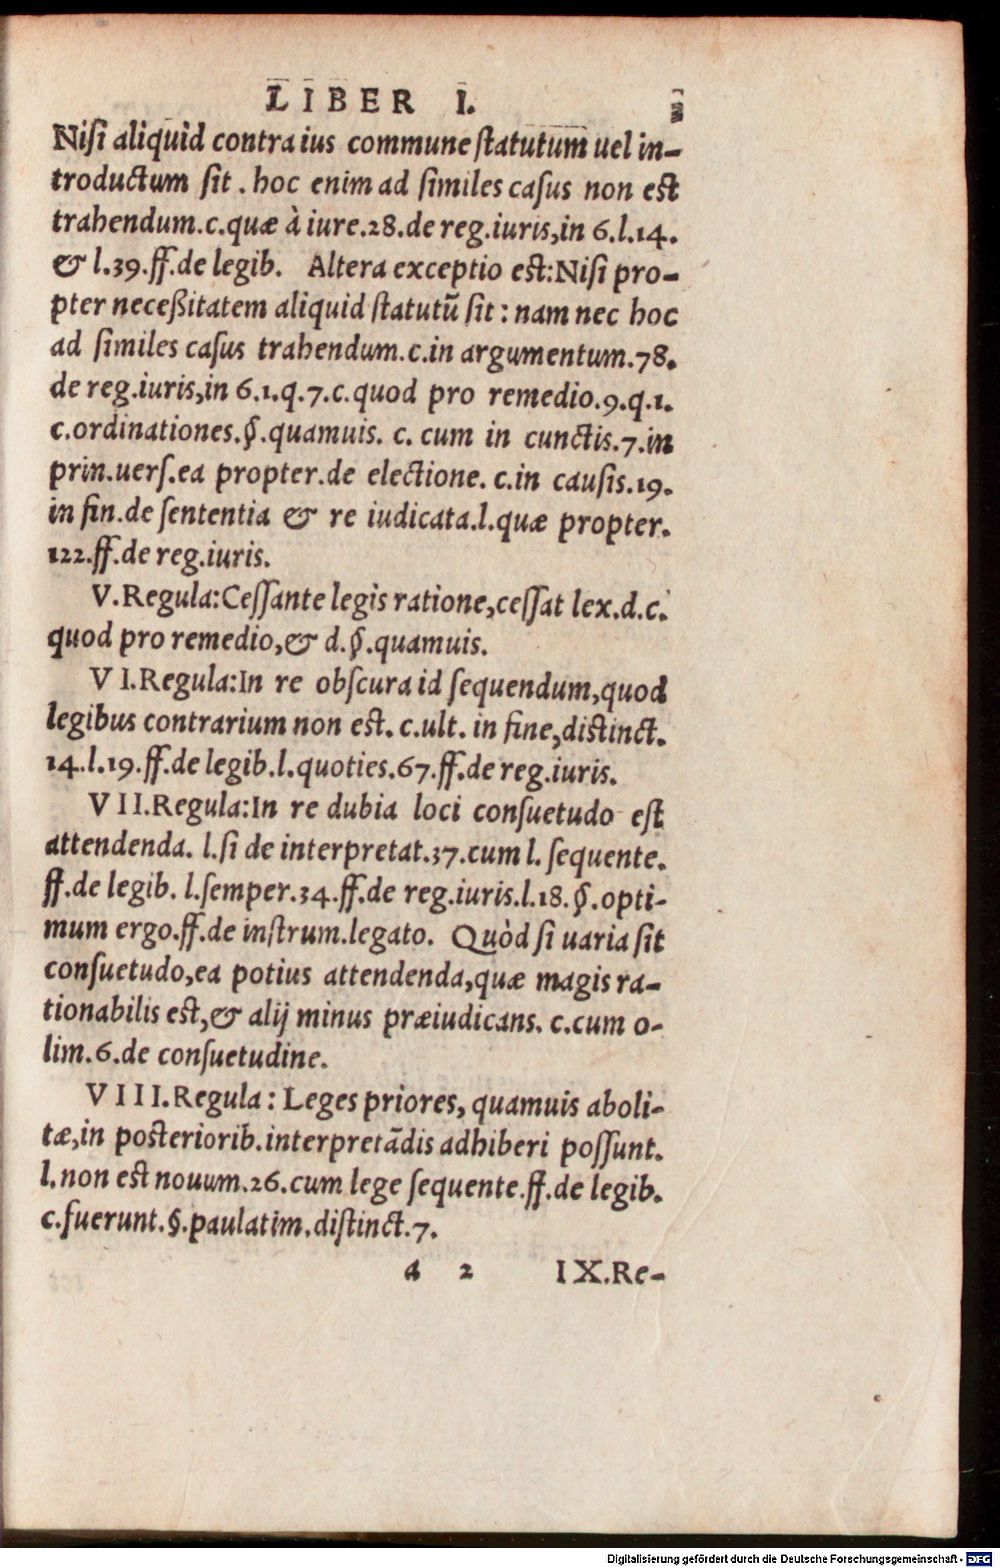 LIBER I. 3
Niſi aliquid contra ius commune ſtatutum uel in-
troductum ſit. hoc enim ad ſimiles caſus non eſt
trahendum.c.quæ à iure.28.de reg.iuris,in 6.l.14.
& l.39.ff.de legib. Altera exceptio eſt:Niſi pro-
pter neceßitatem aliquid ſtatutū ſit: nam nec hoc
ad ſimiles caſus trahendum.c.in argumentum.78.
de reg.iuris,in 6.1.q.7.c.quod pro remedio.9.q.1.
c.ordinationes.§.quamuis. c. cum in cunctis.7.in
prin.uerſ.ea propter.de electione. c.in cauſis.19.
in fin.de ſententia & re iudicata.l.quæ propter.
122.ff.de reg.iuris.
V.Regula:Ceſſante legis ratione,ceſſat lex.d.c.
quod pro remedio,& d.§.quamuis.
VI.Regula:In re obſcura id ſequendum,quod
legibus contrarium non eſt. c.ult. in fine,diſtinct.
14.l.19.ff.de legib.l.quoties.67.ff.de reg.iuris.
VII.Regula:In re dubia loci conſuetudo eſt
attendenda. l.ſi de interpretat.37.cum l. ſequente.
ff.de legib. l.ſemper.34.ff.de reg.iuris.l.18.§.opti-
mum ergo.ff.de inſtrum.legato. Quòd ſi uaria ſit
conſuetudo,ea potius attendenda,quæ magis ra-
tionabilis eſt,& alij minus præiudicans. c.cum o-
lim.6.de conſuetudine.
VIII.Regula: Leges priores, quamuis aboli-
tæ,in poſteriorib.interpretādis adhiberi poſſunt.
l.non eſt nouum.26.cum lege ſequente.ff.de legib.
c.fuerunt.§.paulatim.diſtinct.7.
a 2 IX.Re-
Digitalisierung gefördert durch die Deutsche Forschungsgemeinschaft - DFG